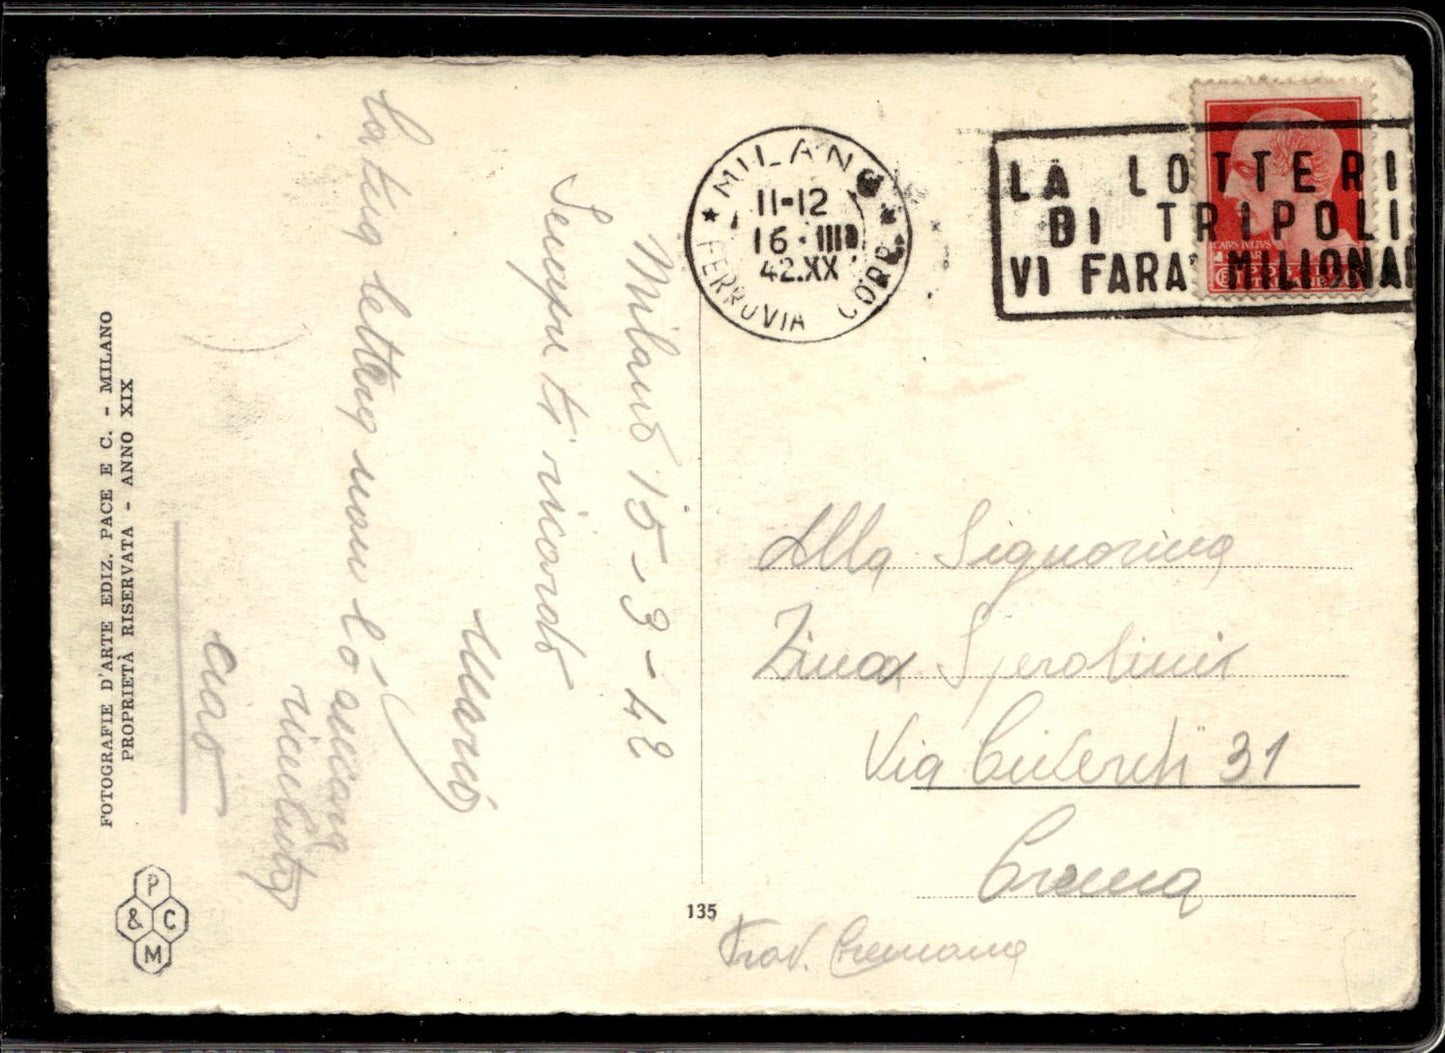 FOTOGRAFIE D'ARTE EDIZ. PACE E C. - MILANO
PROPRIETÀ RISERVATA - ANNO XIX
P
& C
M
135
Milano 15-3-42
Sempre ti ricordo
La tua lettera non l'ò ancora
ricevuta
ciao
MILANO
11-12
16·III
42.XX
FERROVIA CORR.
LA LOTTERI
DI TRIPOLI
VI FARA' MILIONAR
Alla Signorina
Via 31
Crema
Prov. Cremona